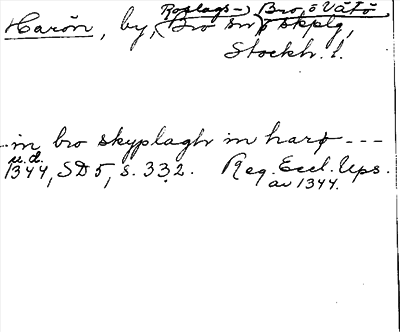 Roslags-) Bro o Vätö
Harön, by, (Bro sn) skplg,
Stockh. l.
..in bro skyplaghr in harø ---
u.d.
1344, SD 5, s. 332. Reg. Eccl. Ups.
av 1344.